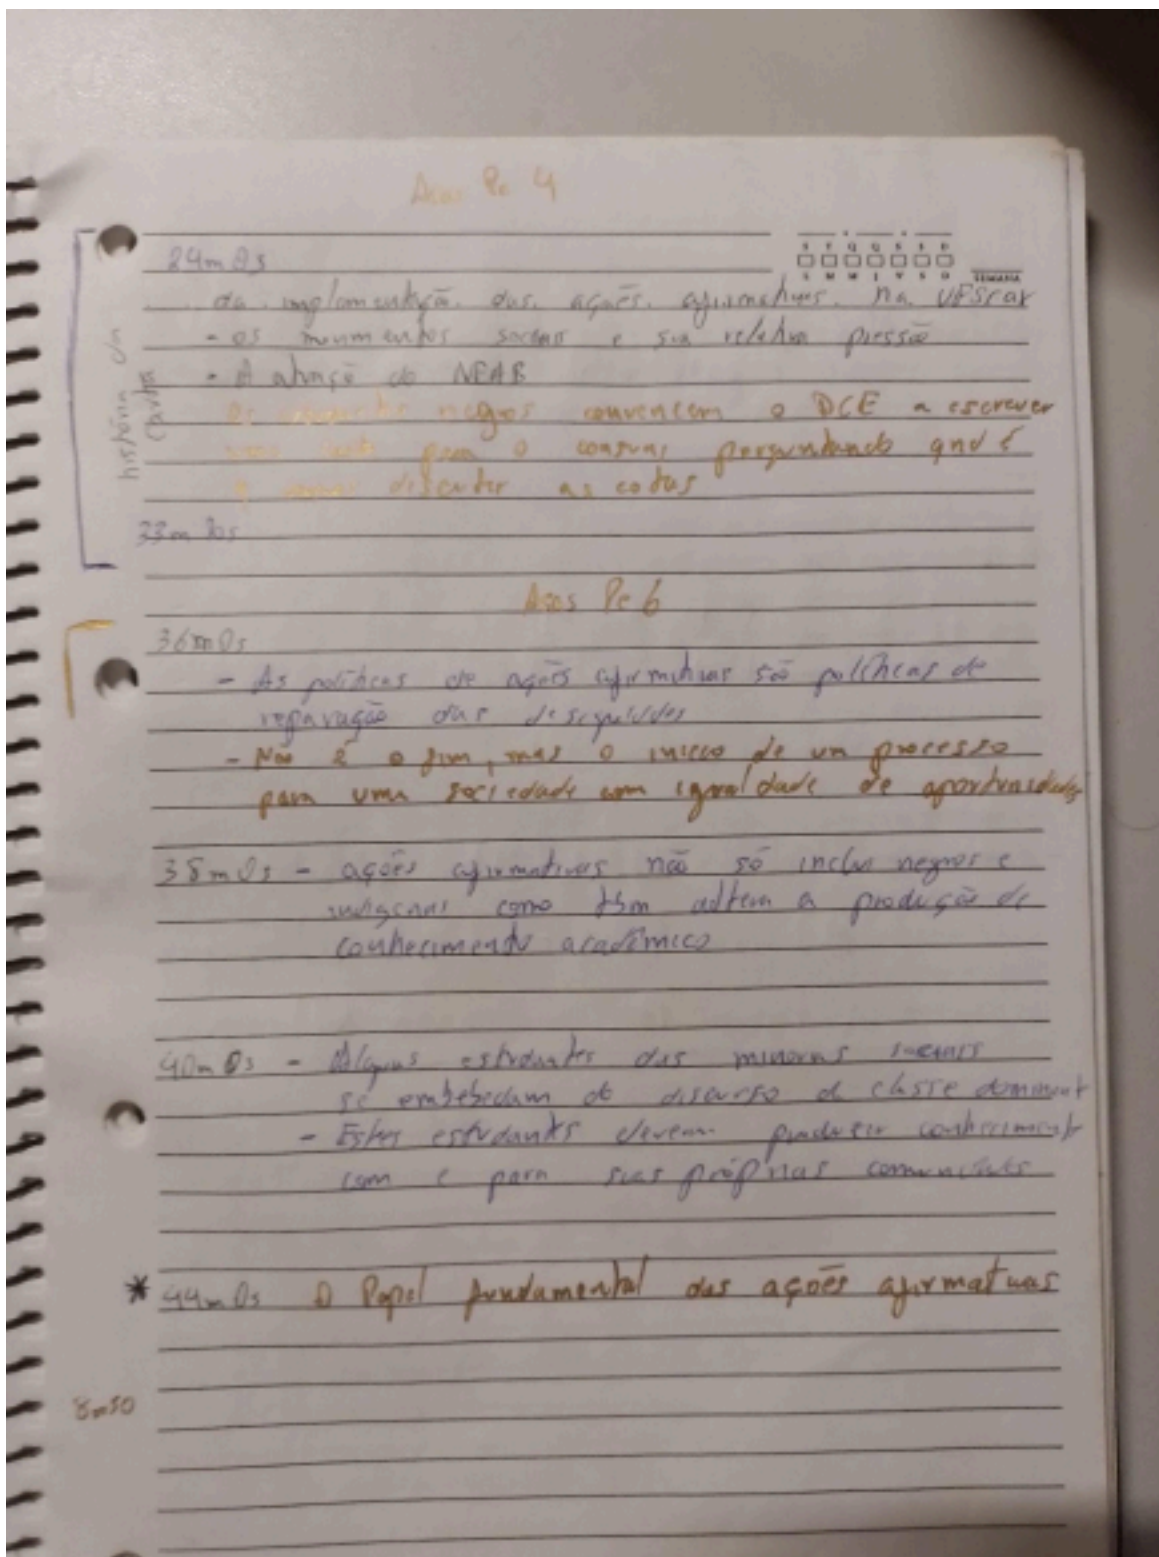 Pe 4
24m 0s
da implementação das ações afirmativas na UFSCar
- os movimentos sociais e sua relativa pressão
- A atuação do NEAB
negros convencem o DCE a escrever
para o consuni perguntando qnd é
discutir as cotas
história da carta
33m 30s
Pe 6
36m 0s
- As políticas de ações afirmativas são políticas de
reparação das desigualdades
- Não é o fim, mas o inicio de um processo
para uma sociedade com igualdade de oportunidades
38m 0s - ações afirmativas não só inclui negros e
indígenas como tbm altera a produção de
conhecimento acadêmico
40m 0s - Alguns estudantes das minorias sociais
se embebedam do discurso da classe dominant
- Estes estudantes devem produzir conheciment
com e para suas próprias comunidades
* 44m 0s O Papel fundamental das ações afirmativas
8m50